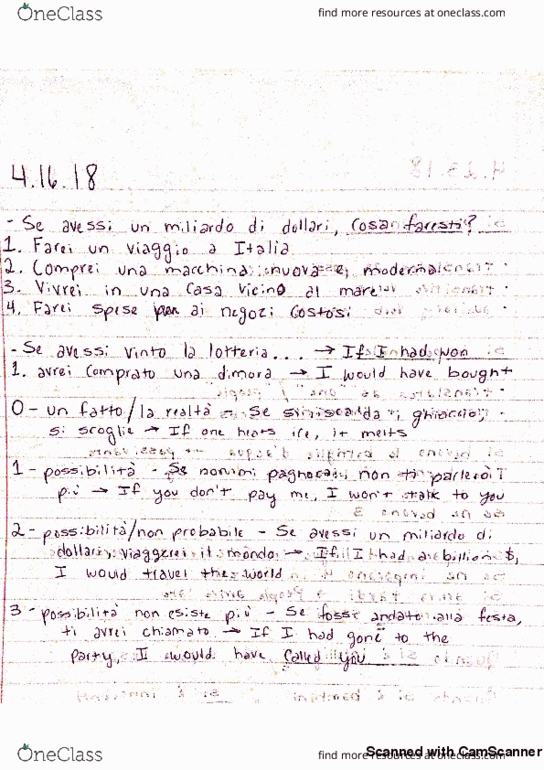 OneClass
find more resources at oneclass.com
4.16.18
- Se avessi un miliardo di dollari, cosa faresti?
1. Farei un viaggio a Italia
2. Comprei una macchina nuova e moderna
3. Vivrei in una casa vicino al mare
4. Farei spese ai negozi costosi
- Se avessi vinto la lotteria... → If I had won
1. avrei comprato una dimora → I would have bought
0 - un fatto/la realtà - Se si riscalda i ghiaccio,
si scoglie → If one heats ice, it melts
1 - possibilità - Se non mi pagno, non ti parlerò
più → If you don't pay me, I won't talk to you
2 - possibilità/non probabile - Se avessi un miliardo di
dollari, viaggerei il mondo → If I had a billion $,
I would travel the world
3 - possibilità non esiste più - Se fosse andato alla festa,
ti avrei chiamato → If I had gone to the
party, I would have called you
Scanned with CamScanner
OneClass
find more resources at oneclass.com